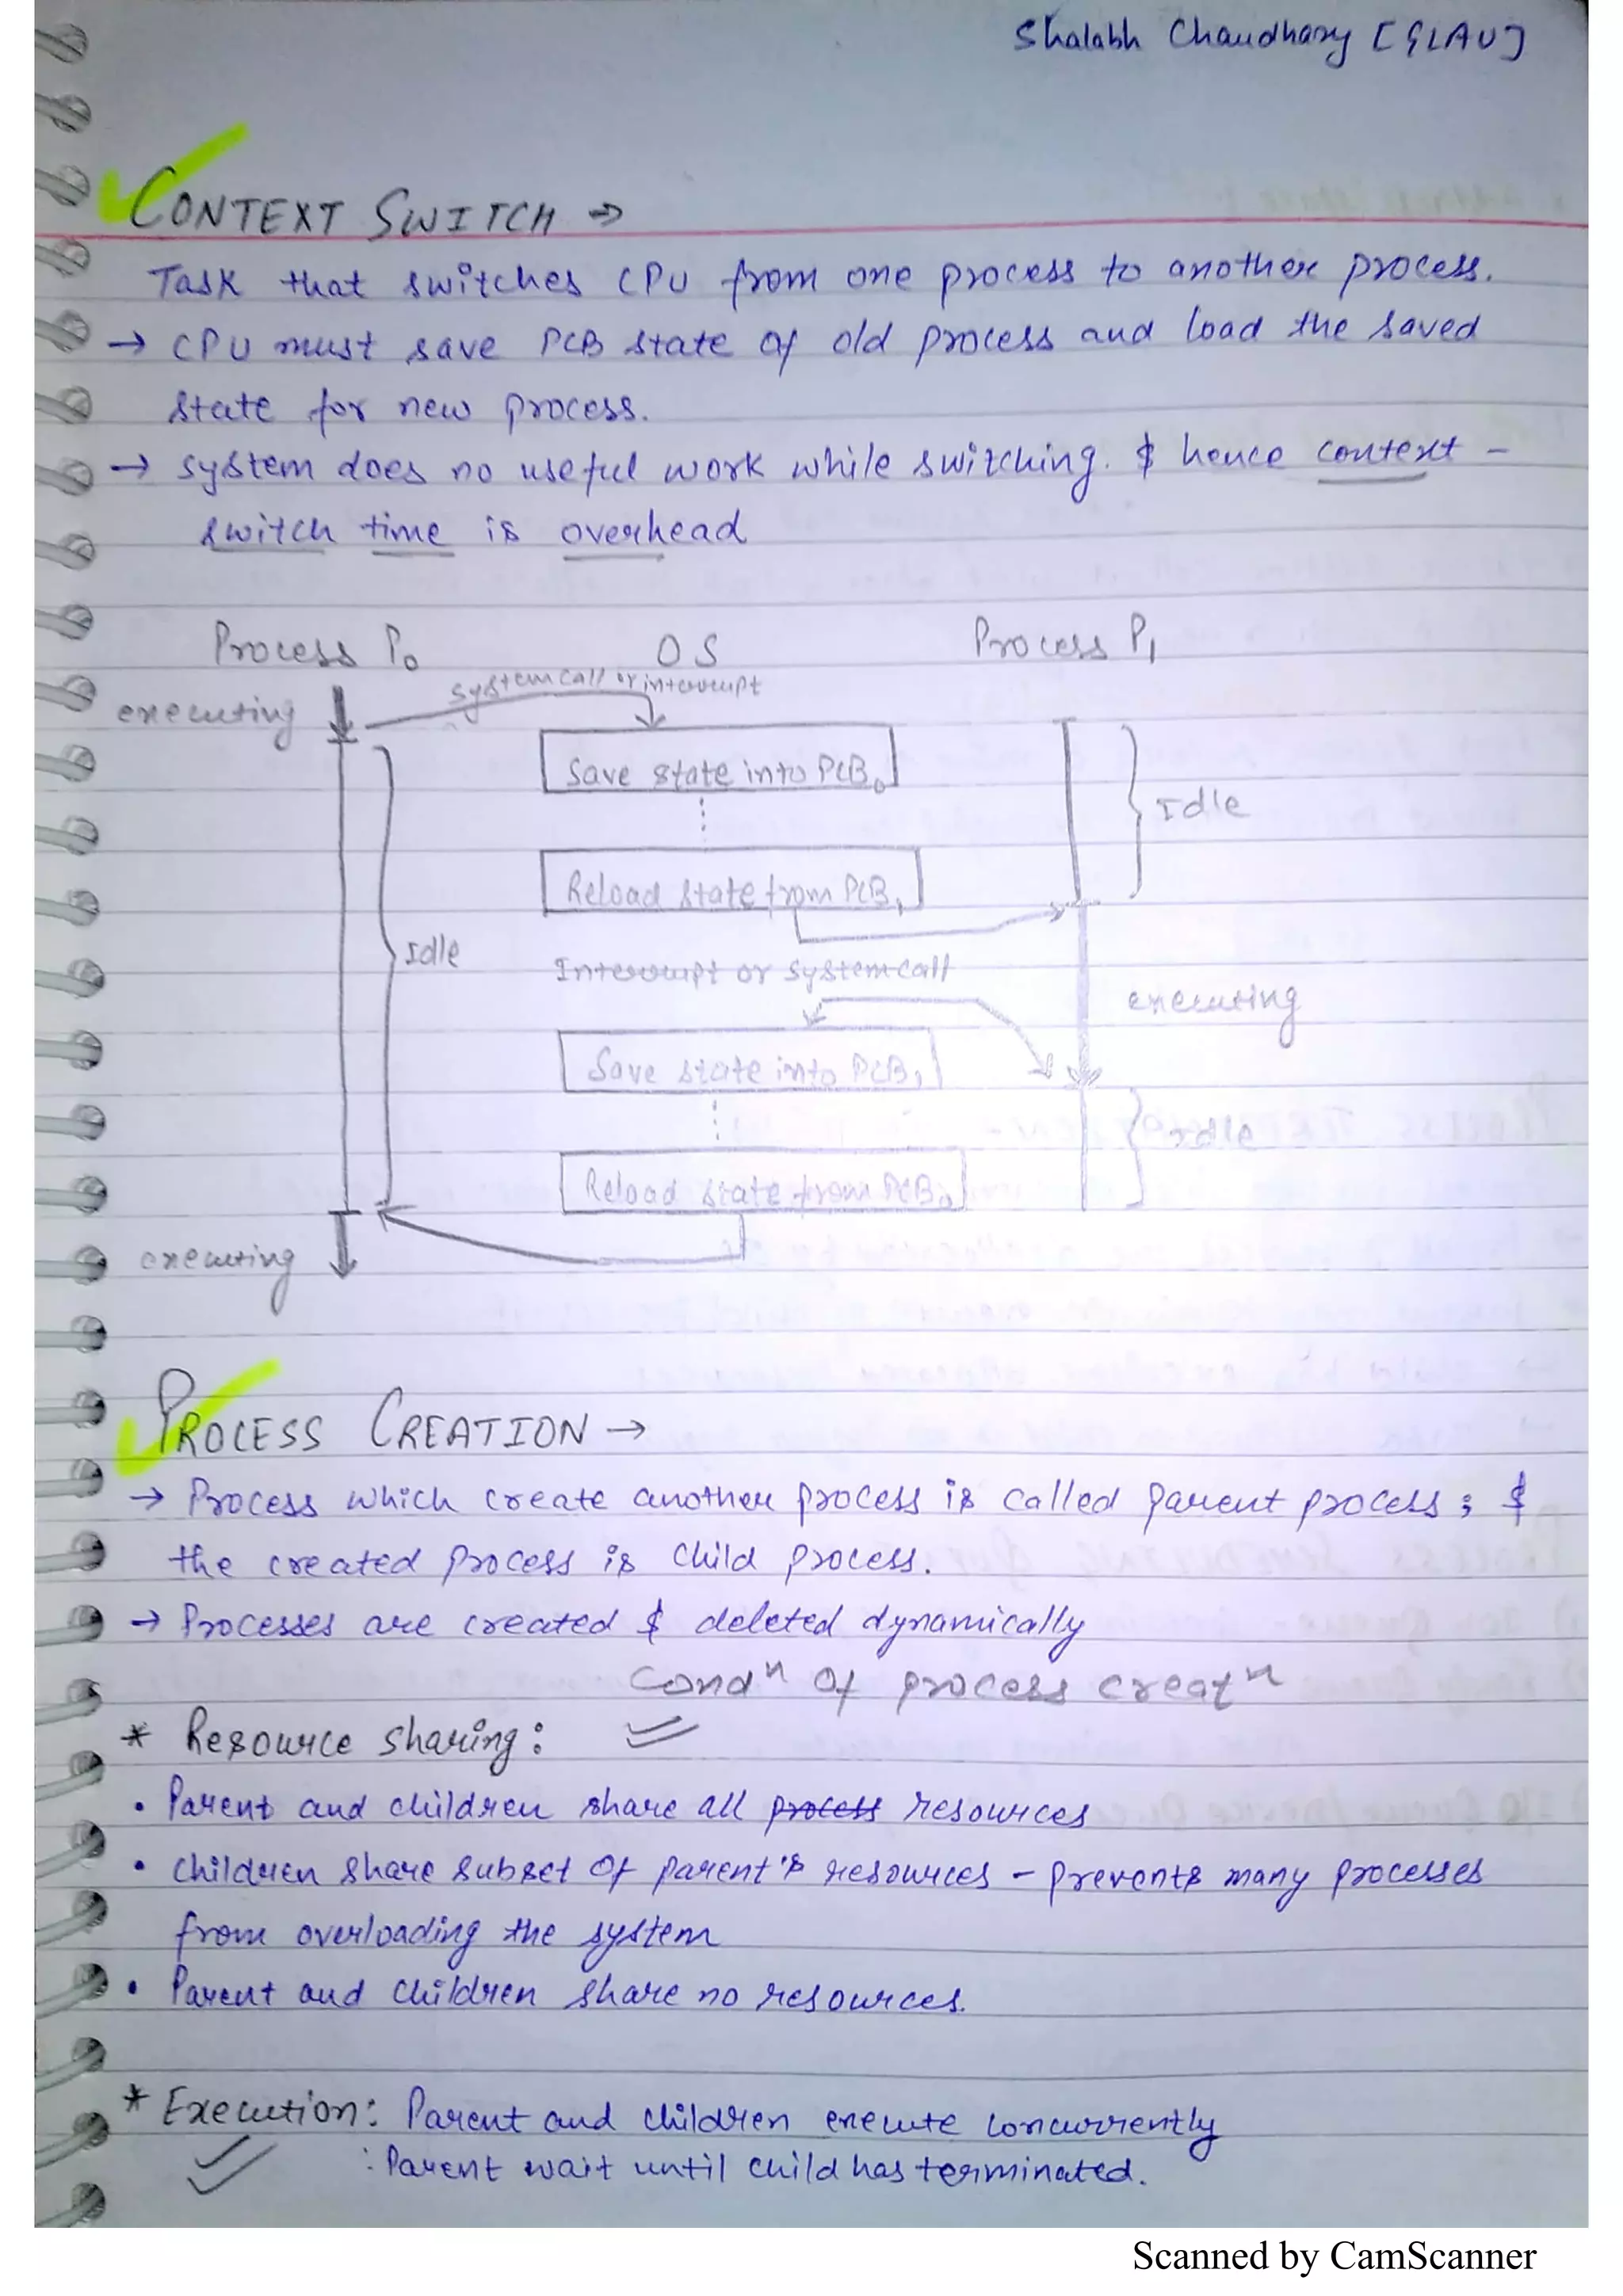 Shalabh Chaudhary [GLAU]
CONTEXT SWITCH →
Task that switches CPU from one process to another process.
→ CPU must save PCB state of old process and load the saved
state for new process.
→ system does no useful work while switching. & hence context -
switch time is overhead
Process P0 OS Process P1
system call or interrupt
executing
Save state into PCB0
Idle
Reload state from PCB1
Idle
Interrupt or system call
executing
Save state into PCB1
Idle
Reload state from PCB0
executing
PROCESS CREATION →
→ Process which create another process is called parent process; &
the created process is child process.
→ Processes are created & deleted dynamically
Condⁿ of process creatⁿ
* Resource sharing:
• Parent and children share all process resources
• children share subset of parent's resources - prevents many processes
from overloading the system
• Parent and children share no resources.
* Execution: Parent and children execute concurrently
: Parent wait until child has terminated.
Scanned by CamScanner